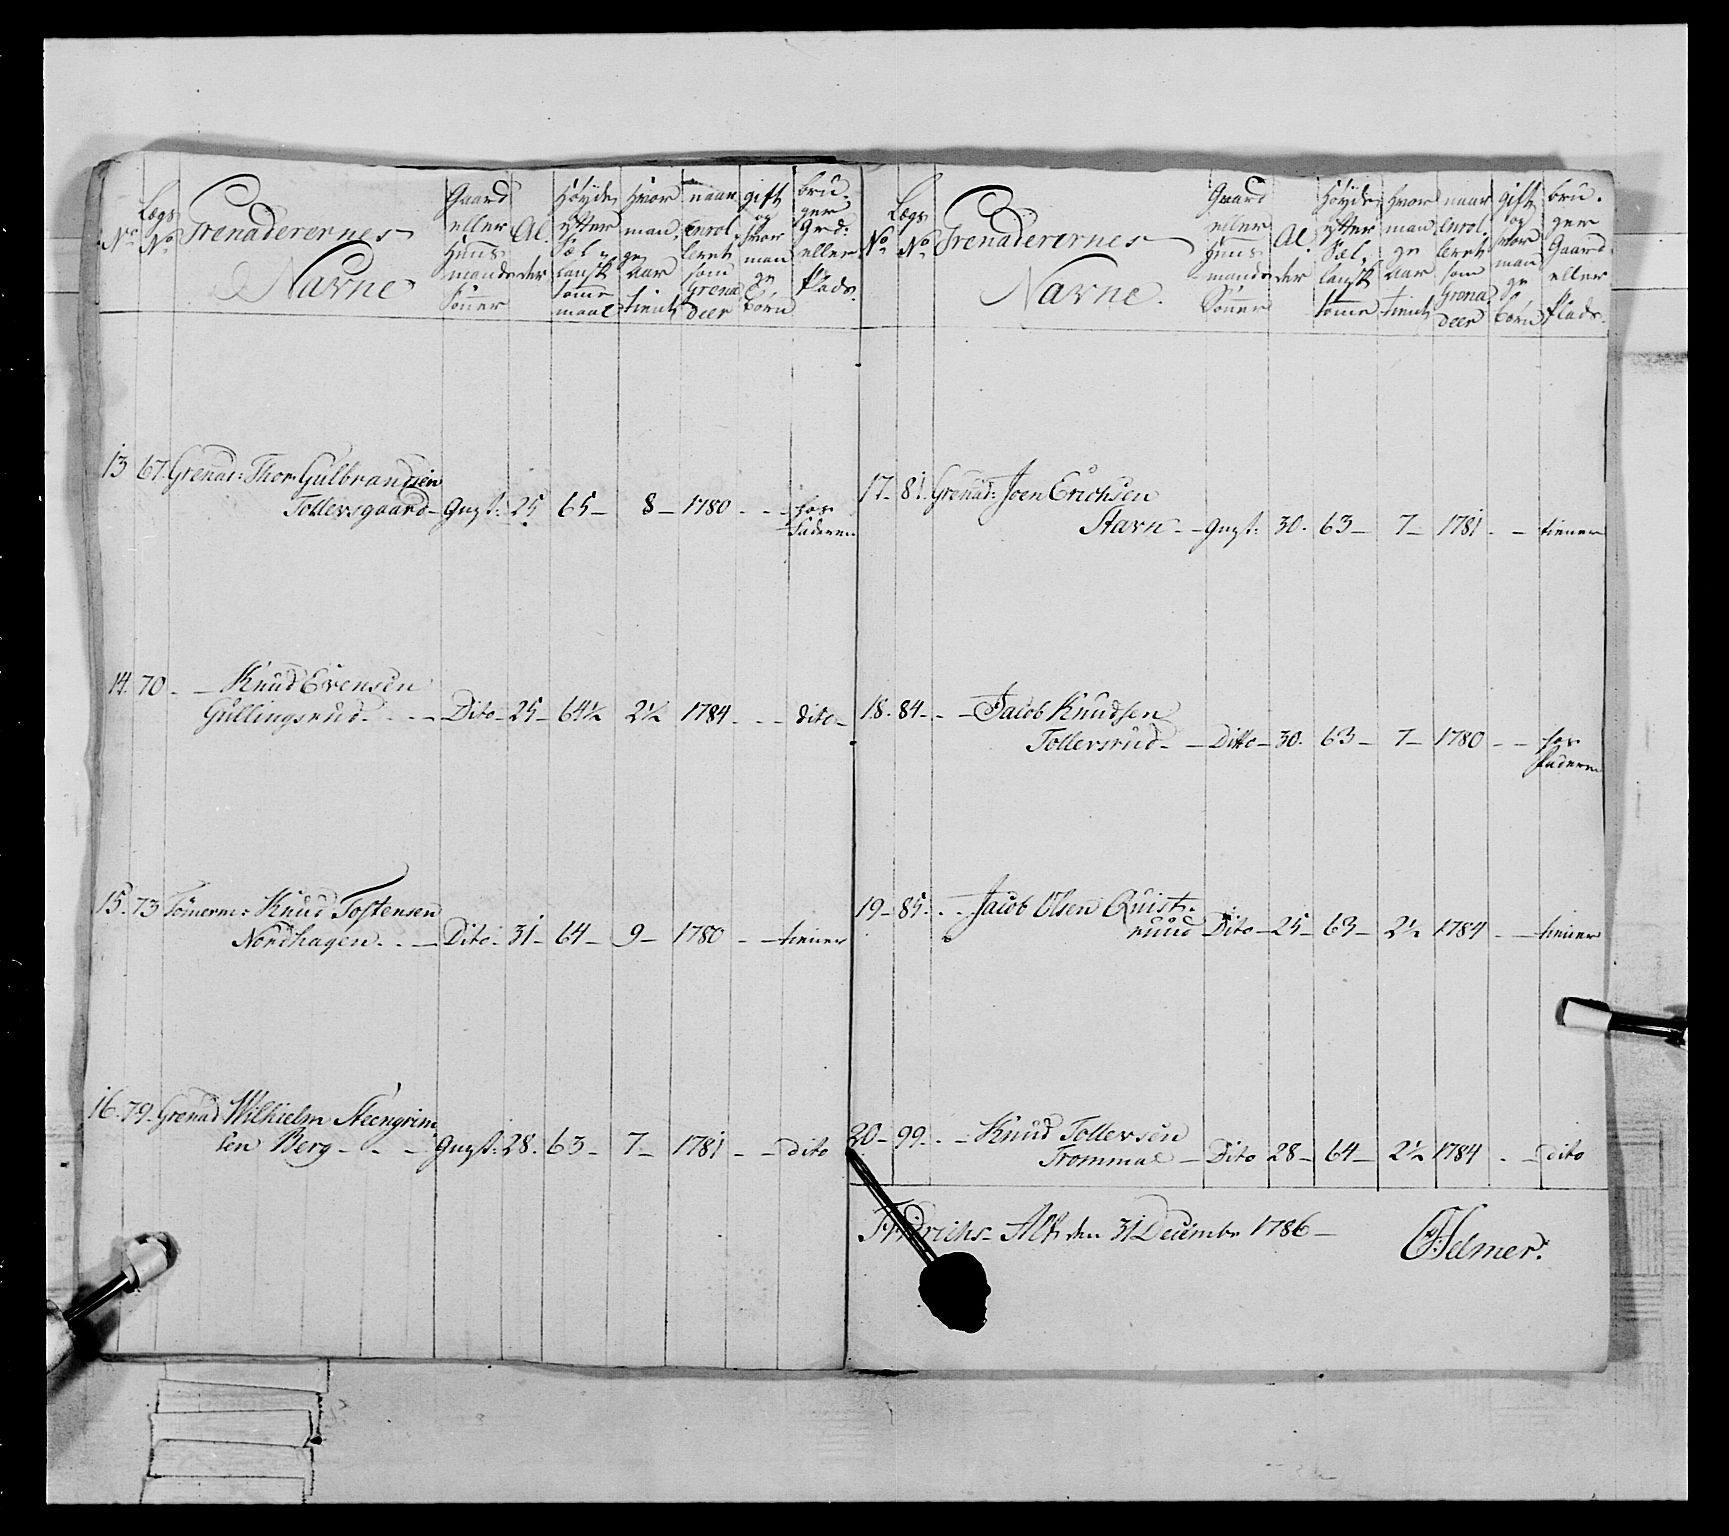 No
Lægs No
Grenaderernes
Navne
Gaard eller Huus mands Sønner
Al der
Høyde efter Sæl landsk tomme maal
Hvor man ge aar tient
naar enrol leret som Grena deer
gift og hvor man ge børn
bru ger Grd: eller Plads.
13 67. Grenad: Thor Gulbrandsen
Tollersgaard - Gmst: 25 65 - 8 - 1780 - - hos
Faderen
14. 70 - - Knud Evensen
Gullingsrud - - - Dito - 25 - 64½ 2½ 1784 - - dito -
15. 73 Tömerm: Knud Tostensen
Nordhagen - - - Dito - 31 - 64 - 9 - 1780 - - tiener
16. 79. Grenad Wilhielm Steengrim
sen Berg - - - Gmst: 28. 63 - 7 - 1781 - - dito
No
Lægs No
Grenaderernes
Navne.
Gaard eller Huus mands Sønner
Al der
Høyde efter Sæl landsk tomme
Hvor man ge aar tient
naar enrol leret som Grena deer
gift og hvor man ge børn
bru ger Gaard eller Plads.
17. 81. Grenad: Joen Erichsen
Stavn - - Gmst: 30. 63 - 7 - 1781 - - tiener
18. 84 - - Jacob Knudsen
Tollersrud - - Ditto - 30. 63 - 7 - 1780 - - hos
Faderen
19 - 85. - - Jacob Olsen Quist-
ruud Dito - 25 - 63 - 2½ 1784 - - tiener
20 - 99. - - Knud Tollersen
Trommal - Dito 28 - 64 - 2½ 1784 - - dito
Fridrichs-Alt den 31 Decembr 1786 -
Helmer.